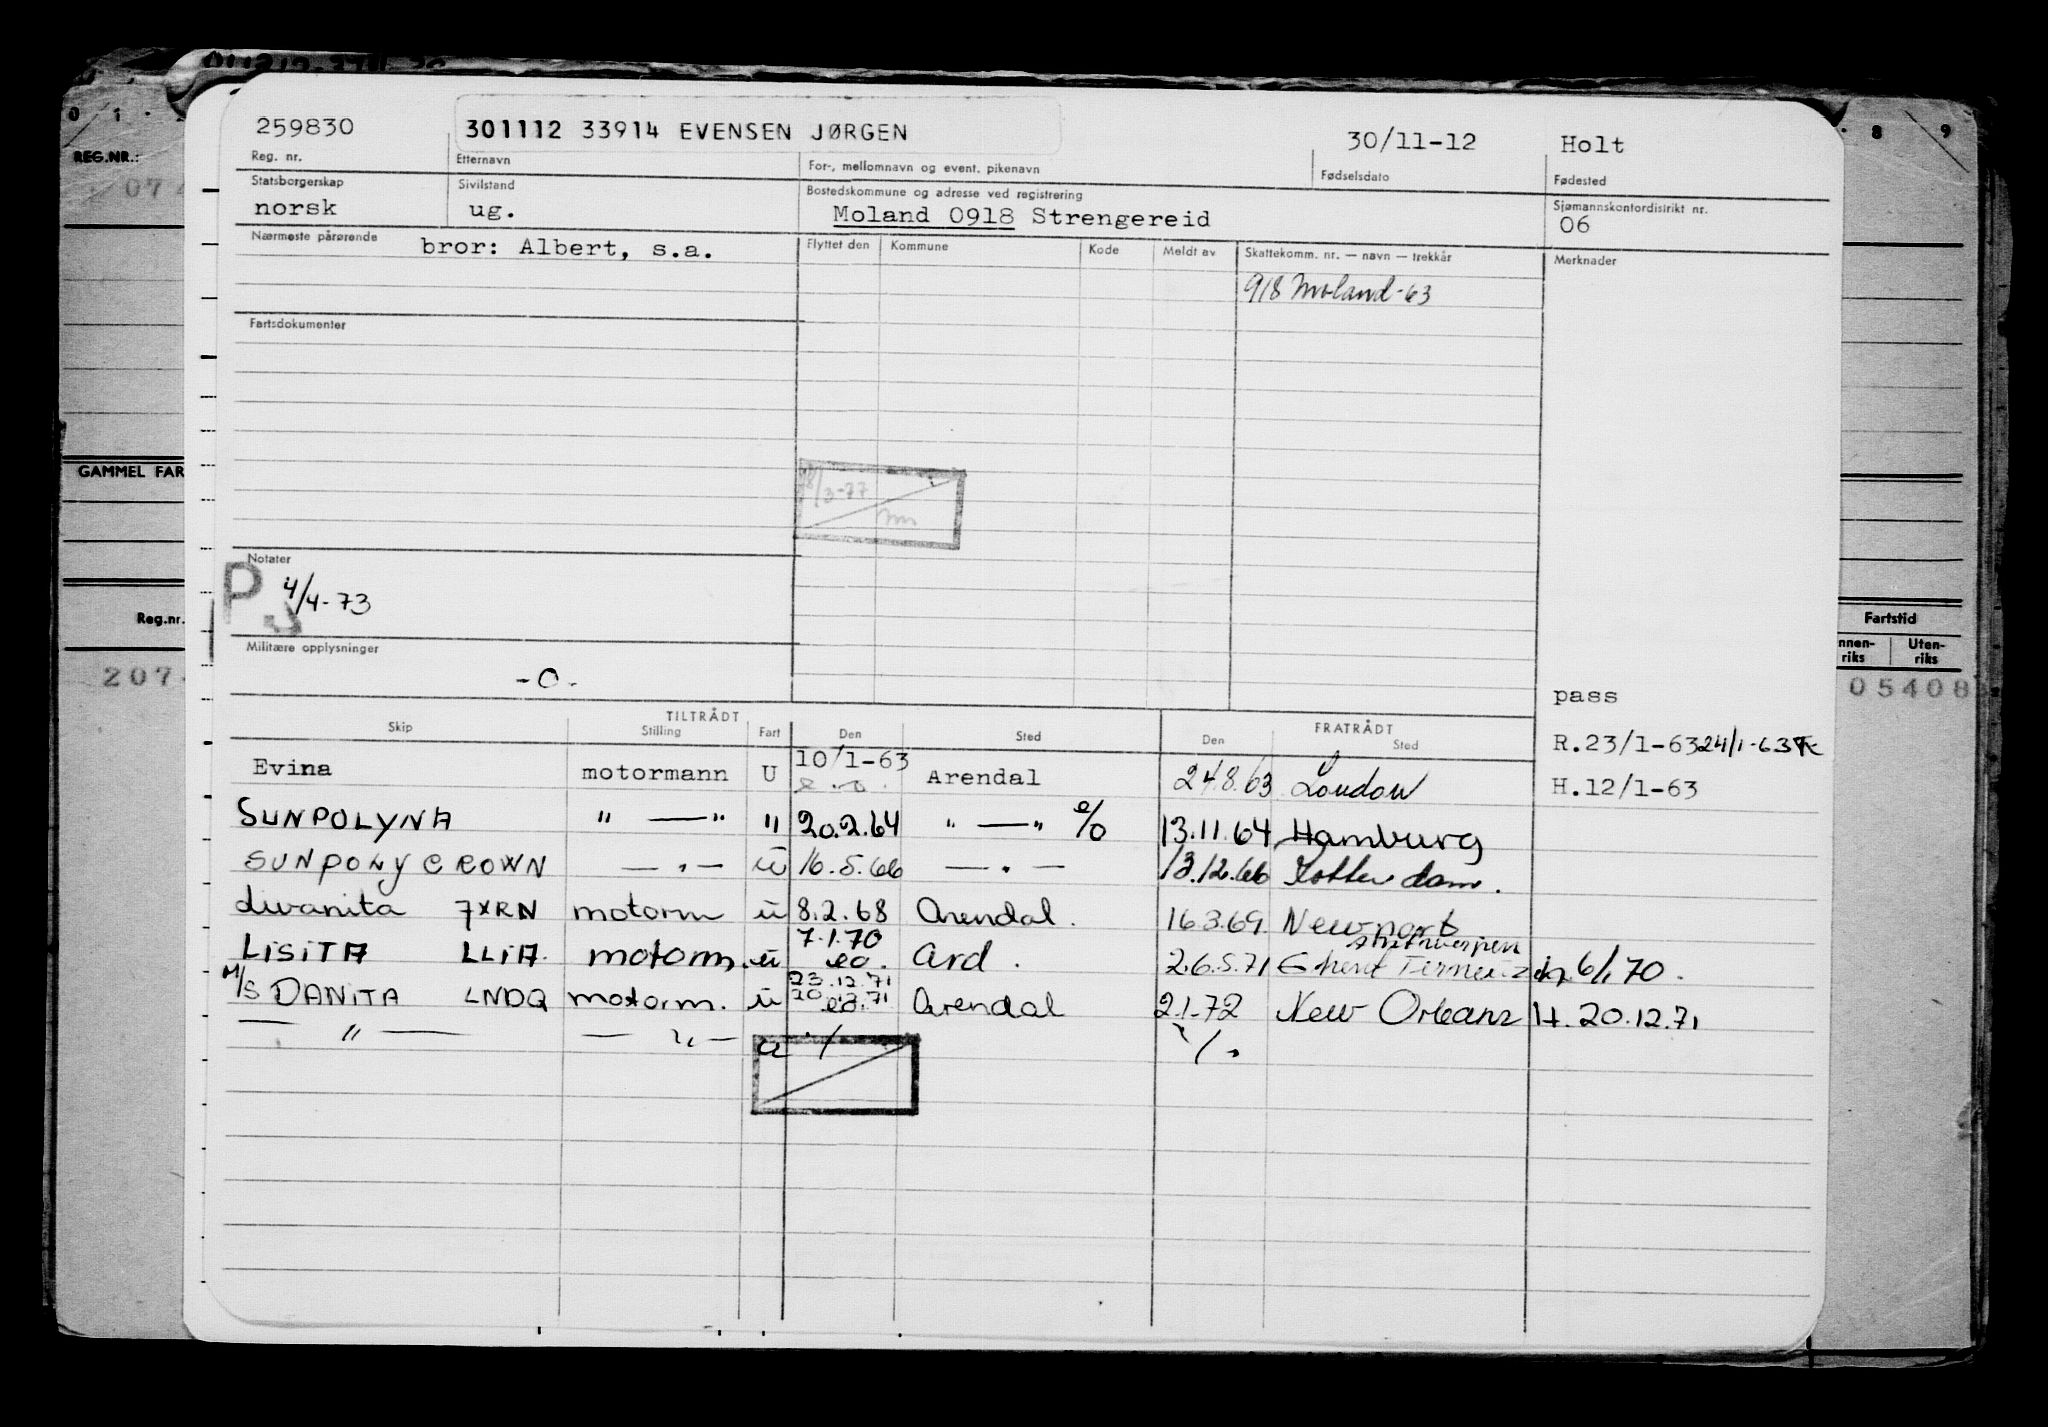 0 1
8 9
REG.NR.:
GAMMEL FAR
Reg.nr.
207
Fartstid
nnen-riks Uten-riks
05408
259830 301112 33914 EVENSEN JØRGEN 30/11-12 Holt
Reg. nr. Etternavn For-, mellomnavn og event. pikenavn Fødselsdato Fødested
Statsborgerskap Sivilstand Bostedskommune og adresse ved registrering Sjømannskontordistrikt nr.
norsk ug. Moland 0918 Strengereid 06
Nærmeste pårørende bror: Albert, s.a. Flyttet den Kommune Kode Meldt av Skattekomm. nr. — navn — trekkår Merknader
918 Moland-63
Fartsdokumenter
8/3-77
Notater
P 4/4-73
Militære opplysninger
-0-
pass
TILTRÅDT FRATRÅDT
Skip Stilling Fart Den Sted Den Sted
R.23/1-63 24/1-63
Evina motormann U 10/1-63 Arendal 24.8.63 London H.12/1-63
SUNPOLYNA " — " " 20.2.64 " — " % 13.11.64 Hamburg
SUNPONY CROWN — " — ū 16.5.66 — " — 13.12.66 Rotterdam.
7XRN motorm ū 8.2.68 Arendal. 16.3.69 Newport
LISITA LLIA. motorm. ū 7.1.70 eo. Ard. 26.5.71 Ghent 6/1 70.
M/S DANITA LNDQ motorm. ū 23.12.71 20 71 Arendal 2.1.72 New Orleans H. 20.12.71
— " — — " — ū